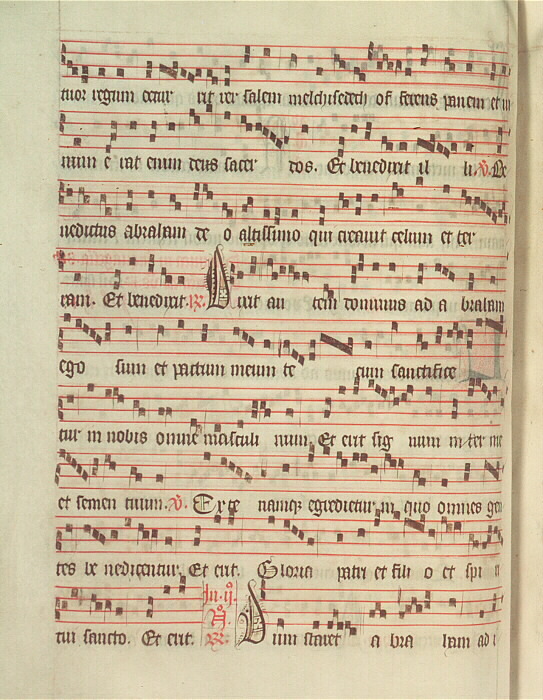 tuor regum occur rit rex salem melchisedech of ferens panem et vi
num e rat enim deus sacer dos. Et benedixit il li. V. Be
nedictus abraham de o altissimo qui creavit celum et ter
ram. Et benedixit. R. Dixit au tem dominus ad a braham
ego sum et pactum meum te cum sanctifice
tur in nobis omne masculi num. Et erit sig num inter me
et semen tuum. V. Ex te namq; egredietur in quo omnes gen
tes be nedicentur. Et erit. Gloria patri et fili o et spi ri
tui sancto. Et erit. In .ij. N. R. Dum staret a bra ham ad i